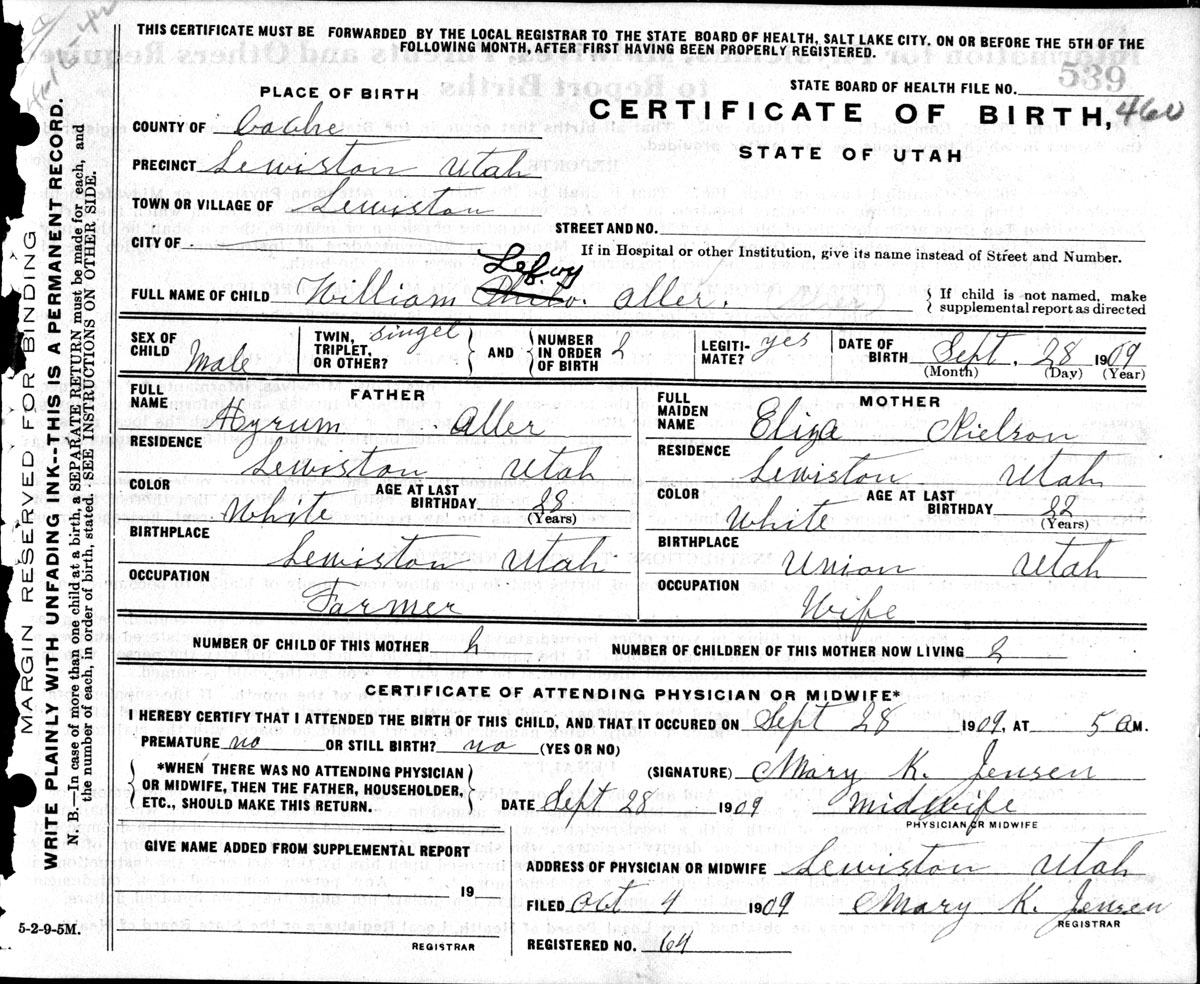 THIS CERTIFICATE MUST BE FORWARDED BY THE LOCAL REGISTRAR TO THE STATE BOARD OF HEALTH, SALT LAKE CITY, ON OR BEFORE THE 5TH OF THE
FOLLOWING MONTH, AFTER FIRST HAVING BEEN PROPERLY REGISTERED.
539
STATE BOARD OF HEALTH FILE NO.
PLACE OF BIRTH
CERTIFICATE OF BIRTH, 460
STATE OF UTAH
COUNTY OF Cache
PRECINCT Lewiston Utah
TOWN OR VILLAGE OF Lewiston
STREET AND NO.
CITY OF
If in Hospital or other Institution, give its name instead of Street and Number.
LeRoy
FULL NAME OF CHILD William Aller.
If child is not named, make
supplemental report as directed
SEX OF CHILD Male
TWIN, TRIPLET, OR OTHER? Singel
AND NUMBER IN ORDER OF BIRTH 2
LEGITIMATE? yes
DATE OF BIRTH Sept. 28 1909
(Month) (Day) (Year)
FATHER
FULL NAME Hyrum Aller
RESIDENCE Lewiston Utah
COLOR White AGE AT LAST BIRTHDAY 28
(Years)
BIRTHPLACE Lewiston Utah
OCCUPATION Farmer
MOTHER
FULL MAIDEN NAME Eliza Nielson
RESIDENCE Lewiston Utah
COLOR White AGE AT LAST BIRTHDAY 22
(Years)
BIRTHPLACE Union Utah
OCCUPATION Wife
NUMBER OF CHILD OF THIS MOTHER 2 NUMBER OF CHILDREN OF THIS MOTHER NOW LIVING 2
CERTIFICATE OF ATTENDING PHYSICIAN OR MIDWIFE*
I HEREBY CERTIFY THAT I ATTENDED THE BIRTH OF THIS CHILD, AND THAT IT OCCURED ON Sept 28 1909, AT 5 AM.
PREMATURE no OR STILL BIRTH? no (YES OR NO)
*WHEN THERE WAS NO ATTENDING PHYSICIAN
OR MIDWIFE, THEN THE FATHER, HOUSEHOLDER,
ETC., SHOULD MAKE THIS RETURN.
(SIGNATURE) Mary K. Jensen
DATE Sept 28 1909 midwife
PHYSICIAN OR MIDWIFE
GIVE NAME ADDED FROM SUPPLEMENTAL REPORT
19
REGISTRAR
ADDRESS OF PHYSICIAN OR MIDWIFE Lewiston Utah
FILED Oct 4 1909 Mary K. Jensen
REGISTRAR
REGISTERED NO. 64
5-2-9-5M.
MARGIN RESERVED FOR BINDING
WRITE PLAINLY WITH UNFADING INK--THIS IS A PERMANENT RECORD.
N. B.—In case of more than one child at a birth, a SEPARATE RETURN must be made for each, and
the number of each, in order of birth, stated. SEE INSTRUCTIONS ON OTHER SIDE.